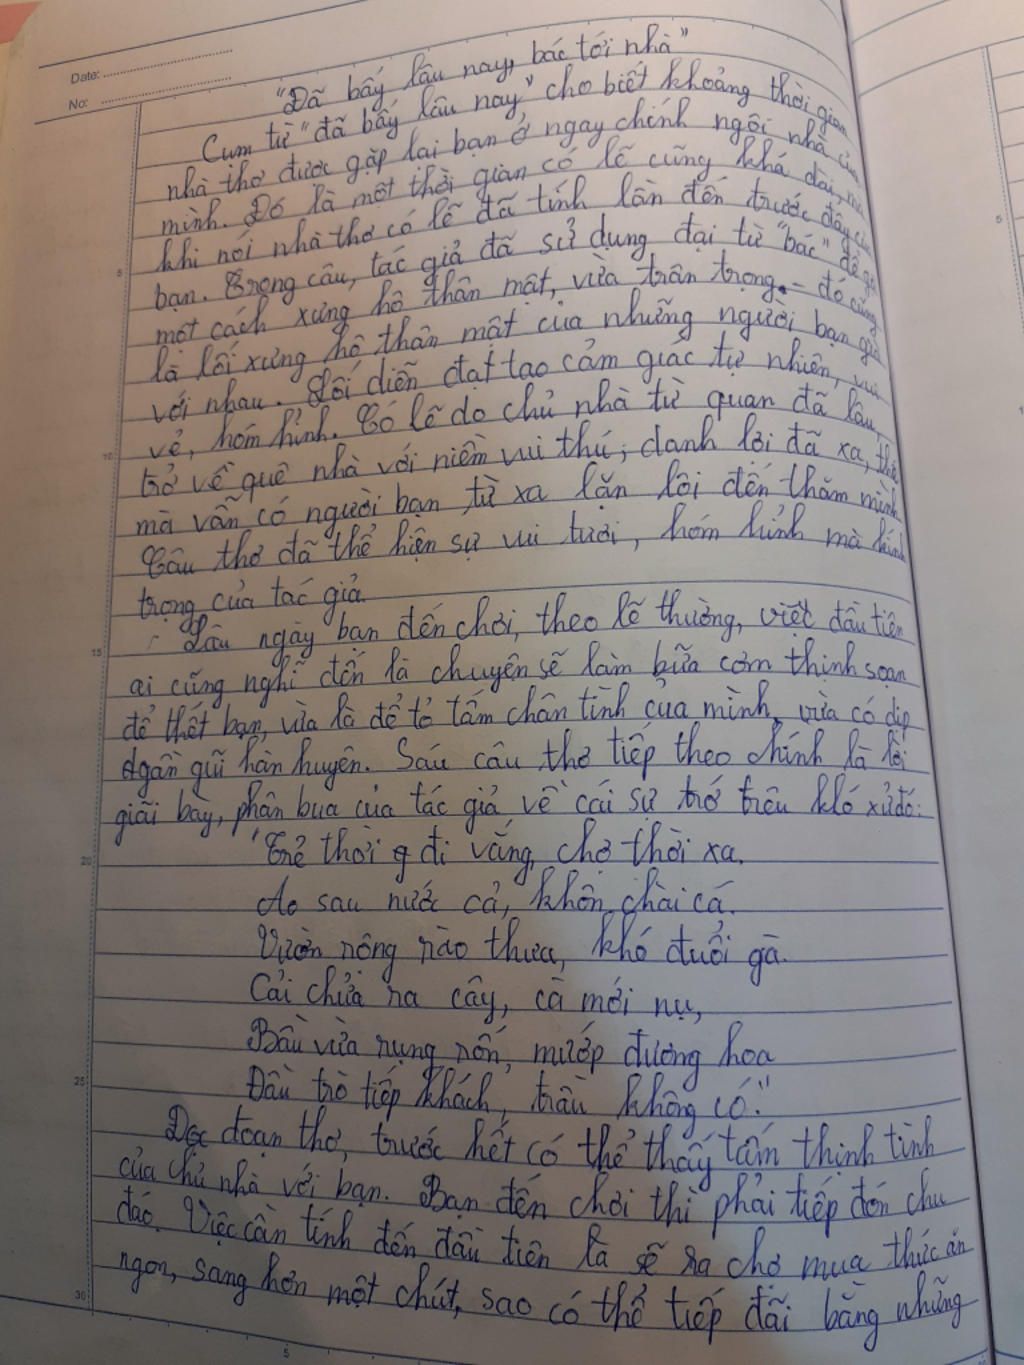 Date:
No:
"Đã bấy lâu nay, bác tới nhà"
Cụm từ "đã bấy lâu nay" cho biết khoảng thời gian
nhà thơ được gặp lại bạn ở ngay chính ngôi nhà của
mình. Đó là một thời gian có lẽ cũng khá dài, mà
khi nói nhà thơ có lẽ đã tính lần đến trước đây của
bạn. Trong câu, tác giả đã sử dụng đại từ "bác" để gọi
một cách xưng hô thân mật, vừa trân trọng - đó cũng
là lối xưng hô thân mật của những người bạn già
với nhau. Lối diễn đạt tạo cảm giác tự nhiên, vui
vẻ, hóm hỉnh. Có lẽ do chủ nhà từ quan đã lâu,
trở về quê nhà với niềm vui thú; danh lợi đã xa, thế
mà vẫn có người bạn từ xa lặn lội đến thăm mình
Câu thơ đã thể hiện sự vui tươi, hóm hỉnh mà kính
trọng của tác giả.
Lâu ngày bạn đến chơi, theo lẽ thường, việc đầu tiên
ai cũng nghĩ đến là chuyện sẽ làm bữa cơm thịnh soạn
để thết bạn, vừa là để tỏ tấm chân tình của mình, vừa có dịp
gần gũi hàn huyên. Sáu câu thơ tiếp theo chính là lời
giãi bày, phân bua của tác giả về cái sự trớ trêu khó xử đó:
"Trẻ thời đi vắng, chợ thời xa.
Ao sau nước cả, khôn chài cá.
Vườn rộng rào thưa, khó đuổi gà.
Cải chửa ra cây, cà mới nụ,
Bầu vừa rụng rốn, mướp đương hoa
Đầu trò tiếp khách, trầu không có."
Đọc đoạn thơ, trước hết có thể thấy tấm thịnh tình
của chủ nhà với bạn. Bạn đến chơi thì phải tiếp đón chu
đáo. Việc cần tính đến đầu tiên là sẽ ra chợ mua thức ăn
ngon, sang hơn một chút, sao có thể tiếp đãi bằng những
5
10
15
20
25
30
5
5